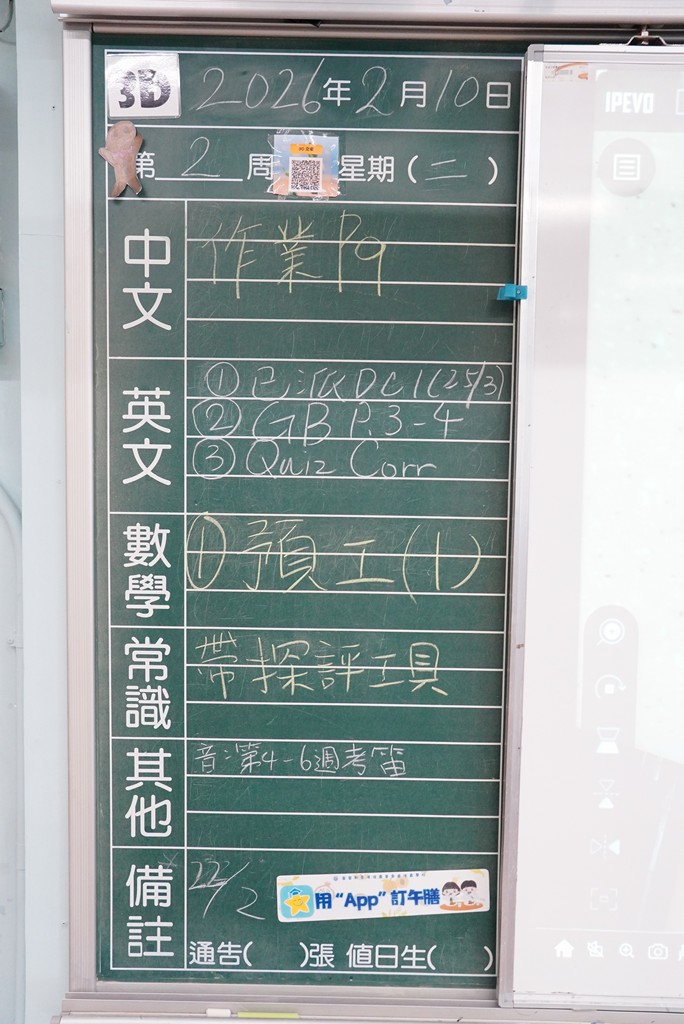 3D 2026年2月10日
第2周 星期(二)
中文
作業P9
英文
① 已派DC1(25/3)
② GB P.3-4
③ Quiz Corr
數學
① 預工(1)
常識
帶探評工具
其他
音:第4-6週考笛
備註
22/2
用“App”訂午膳
通告( )張 值日生( )
IPEVO